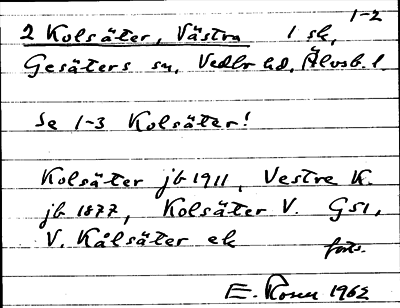 1-2
2 Kolsäter, Västra 1 sk,
Gesäters sn, Vedbo hd, Älvsb. l.
Se 1-3 Kolsäter!
Kolsäter jb 1911, Vestre K.
jb 1877, Kolsäter V. GS1,
V. Kålsäter ek
forts.
E. Rosen 1962